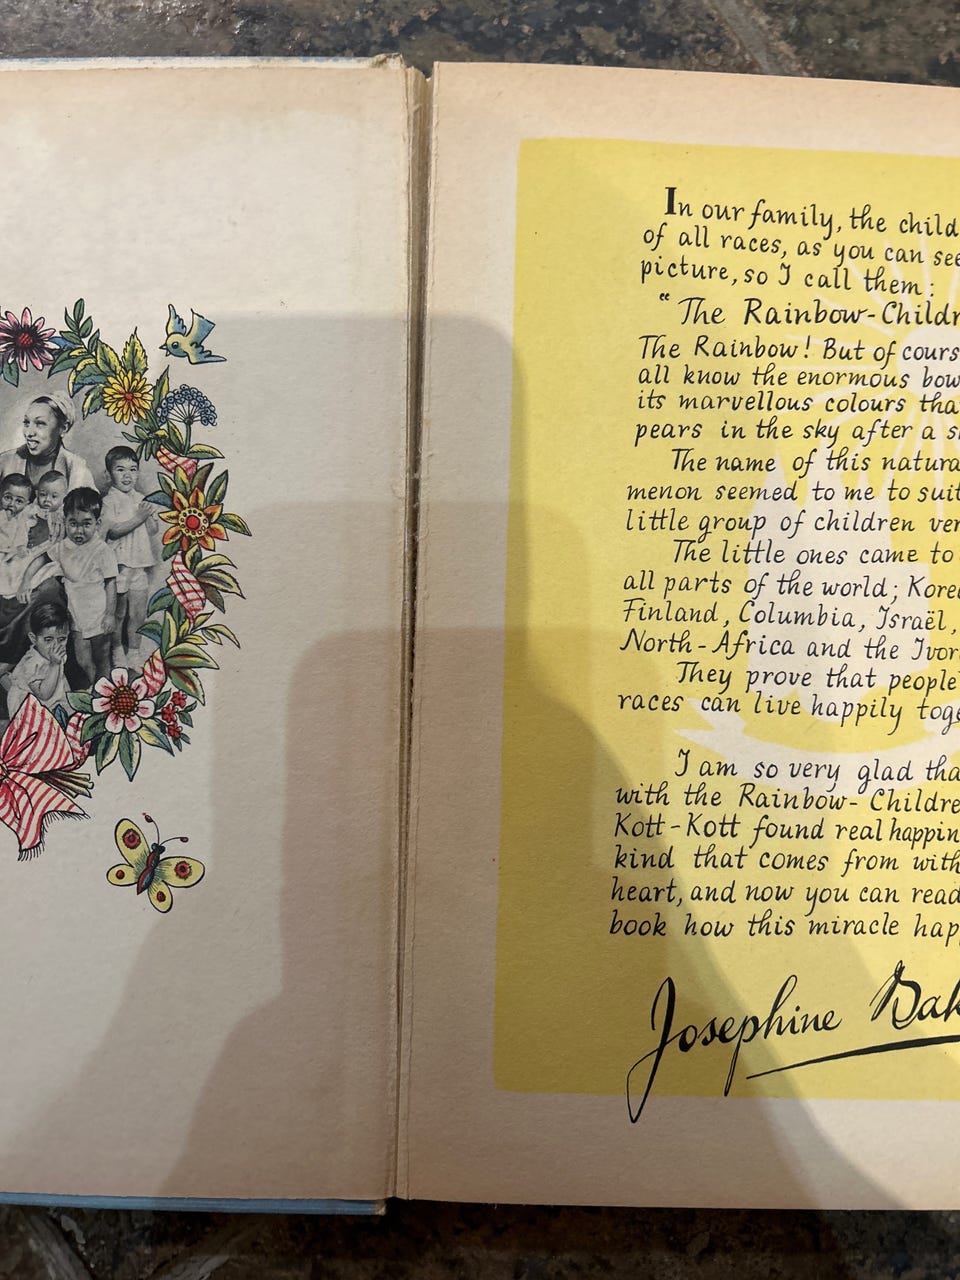 In our family, the child
of all races, as you can see
picture, so I call them:
“The Rainbow-Childr
The Rainbow! But of cours
all know the enormous bow
its marvellous colours tha
pears in the sky after a s
The name of this natura
menon seemed to me to suit
little group of children ver
The little ones came to
all parts of the world; Kore
Finland, Columbia, Israël,
North-Africa and the Ivor
They prove that people
races can live happily toge
I am so very glad tha
with the Rainbow-Childre
Kott-Kott found real happin
kind that comes from with
heart, and now you can read
book how this miracle hap
Josephine Bak